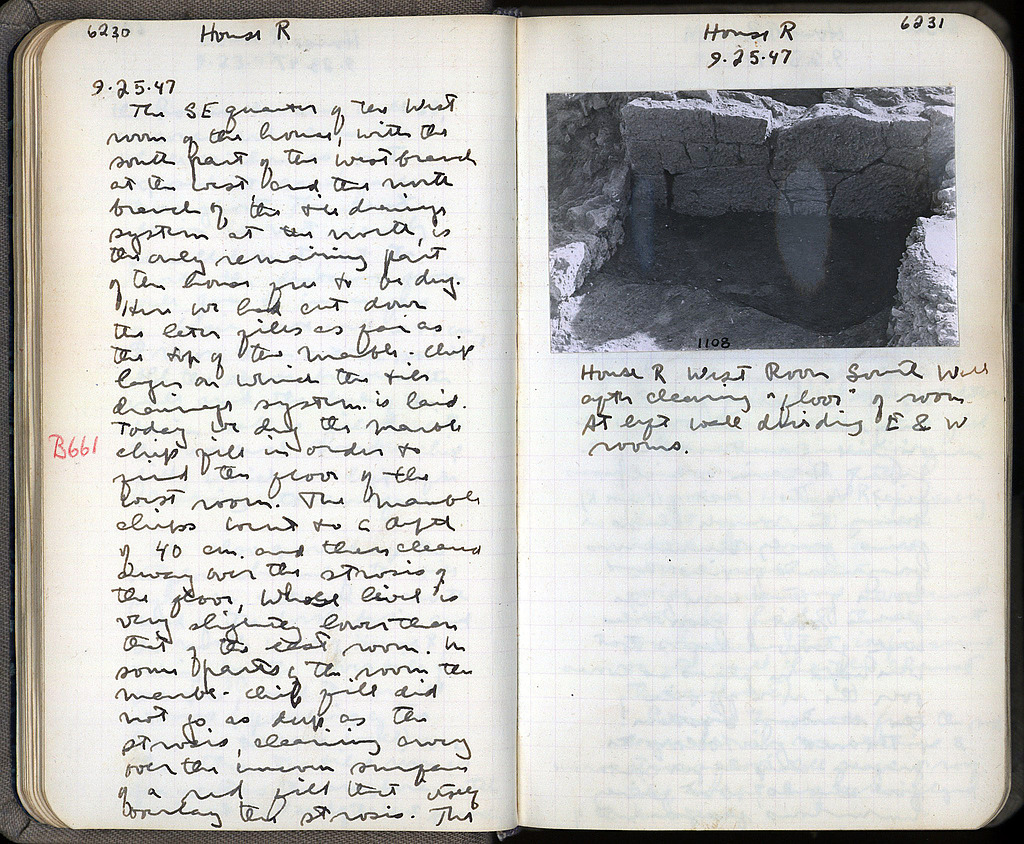 6230
House R
9·25·47
The SE quarter of the West
room of the house, with the
south part of the west branch
at the west and the north
branch of the tile drainage
system at the north, is
the only remaining part
of the house yet to be dug.
Here we had cut down
the later fills as far as
the top of the marble-chip
layer on which the tile
drainage system is laid.
Today we dug the marble
B661
chip fill in order to
find the floor of the
West room. The marble
chips went to a depth
of 40 cm. and then cleaned
away over the strosis of
the floor, whose level is
very slightly lower than
that of the east room. In
some parts of the room the
marble-chip fill did
not go as deep as the
strosis, cleaning away
over the uneven surface
of a red fill that itself
overlay the strosis. The
6231
House R
9·25·47
1108
House R West Room South Wall
after clearing "floor" of room.
At left wall dividing E & W
rooms.